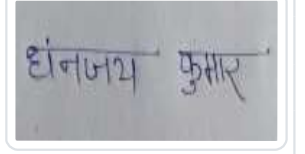 धंनजय कुमार